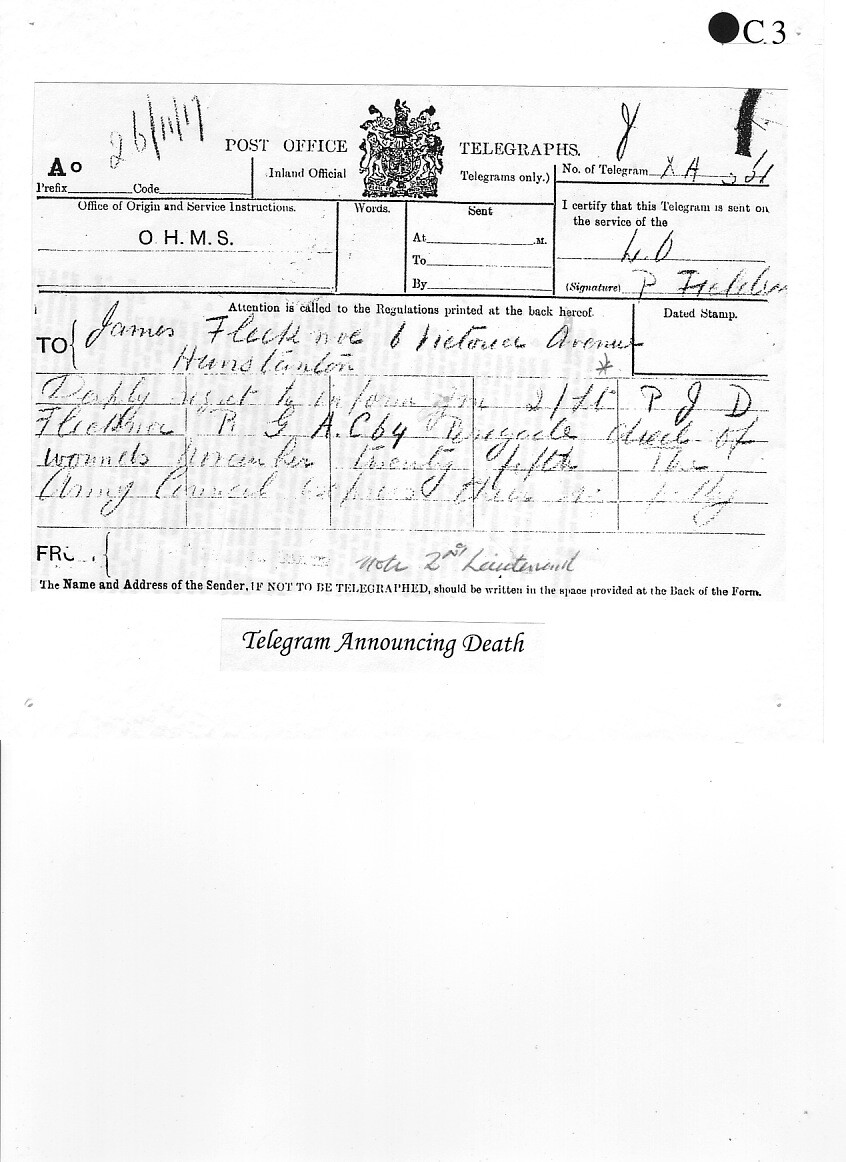 C.3
26/11/17
POST OFFICE TELEGRAPHS.
A o
Inland Official Telegrams only.)
No. of Telegram
Prefix Code
Office of Origin and Service Instructions.
Words.
Sent
I certify that this Telegram is sent on
the service of the
O.H.M.S.
At M.
To
By
(Signature) P
Attention is called to the Regulations printed at the back hereof.
Dated Stamp.
TO James Flecknoe 6 Victoria Avenue
Hunstanton
Deeply regret to inform you 2/Lt P J D
Flecknoe R G A. C64 Brigade died of
wounds November twenty fifth The
Army Council express their sympathy
FROM
Note 2nd Lieutenant
The Name and Address of the Sender, IF NOT TO BE TELEGRAPHED, should be written in the space provided at the Back of the Form.
Telegram Announcing Death